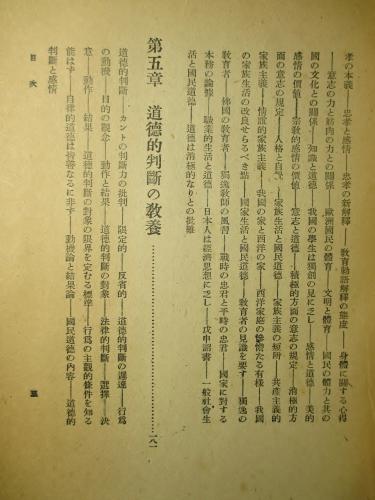 孝の本義――忠孝と感情――忠孝の新解釋――教育勅語解釋の態度――身體に關する心得
――意志の力と筋肉の力との關係――歐洲國民の體育――文明と體育――國民の體力と其の
國の文化との關係――知識と道德――我國の學生は獨創の見に乏し――感情と道德――美的
感情の價値――宗教的感情の價値――意志と道德――積極的方面の意志の規定――消極的方
面の意志の規定――人格と自我――家族生活と國民道德――家族主義の短所――共產主義的
家族主義――情誼的家族主義――我國の家と西洋の家――西洋家庭の慘憺たる有樣――我國
の家族生活の改良せらるべき點――國家生活と國民道德――教育者の見識を要す――獨逸の
教育者――佛國の教育者――獨逸教師の風習――戰時の忠君と平時の忠君――國家に對する
本務の論盡――職業的生活と道德――日本人は經濟思想に乏し――戊申詔書――一般社會生
活と國民道德――道德は消極的なりとの批難
第五章 道德的判斷の教養………一八一
道德的判斷――カントの判斷力の批判――限定的――反省的――道德的判斷の遲速――行爲
の動機――目的の觀念――動作と結果――道德的判斷の對象――法律的判斷――選擇――決
意――動作――結果――道德的判斷の對象の限界を定むる標準――行爲の主觀的條件を知る
能はず――自律的道德は偶善なるに非ず――動機論と結果論――國民道德の內容――道德的
判斷と感情
目次 五